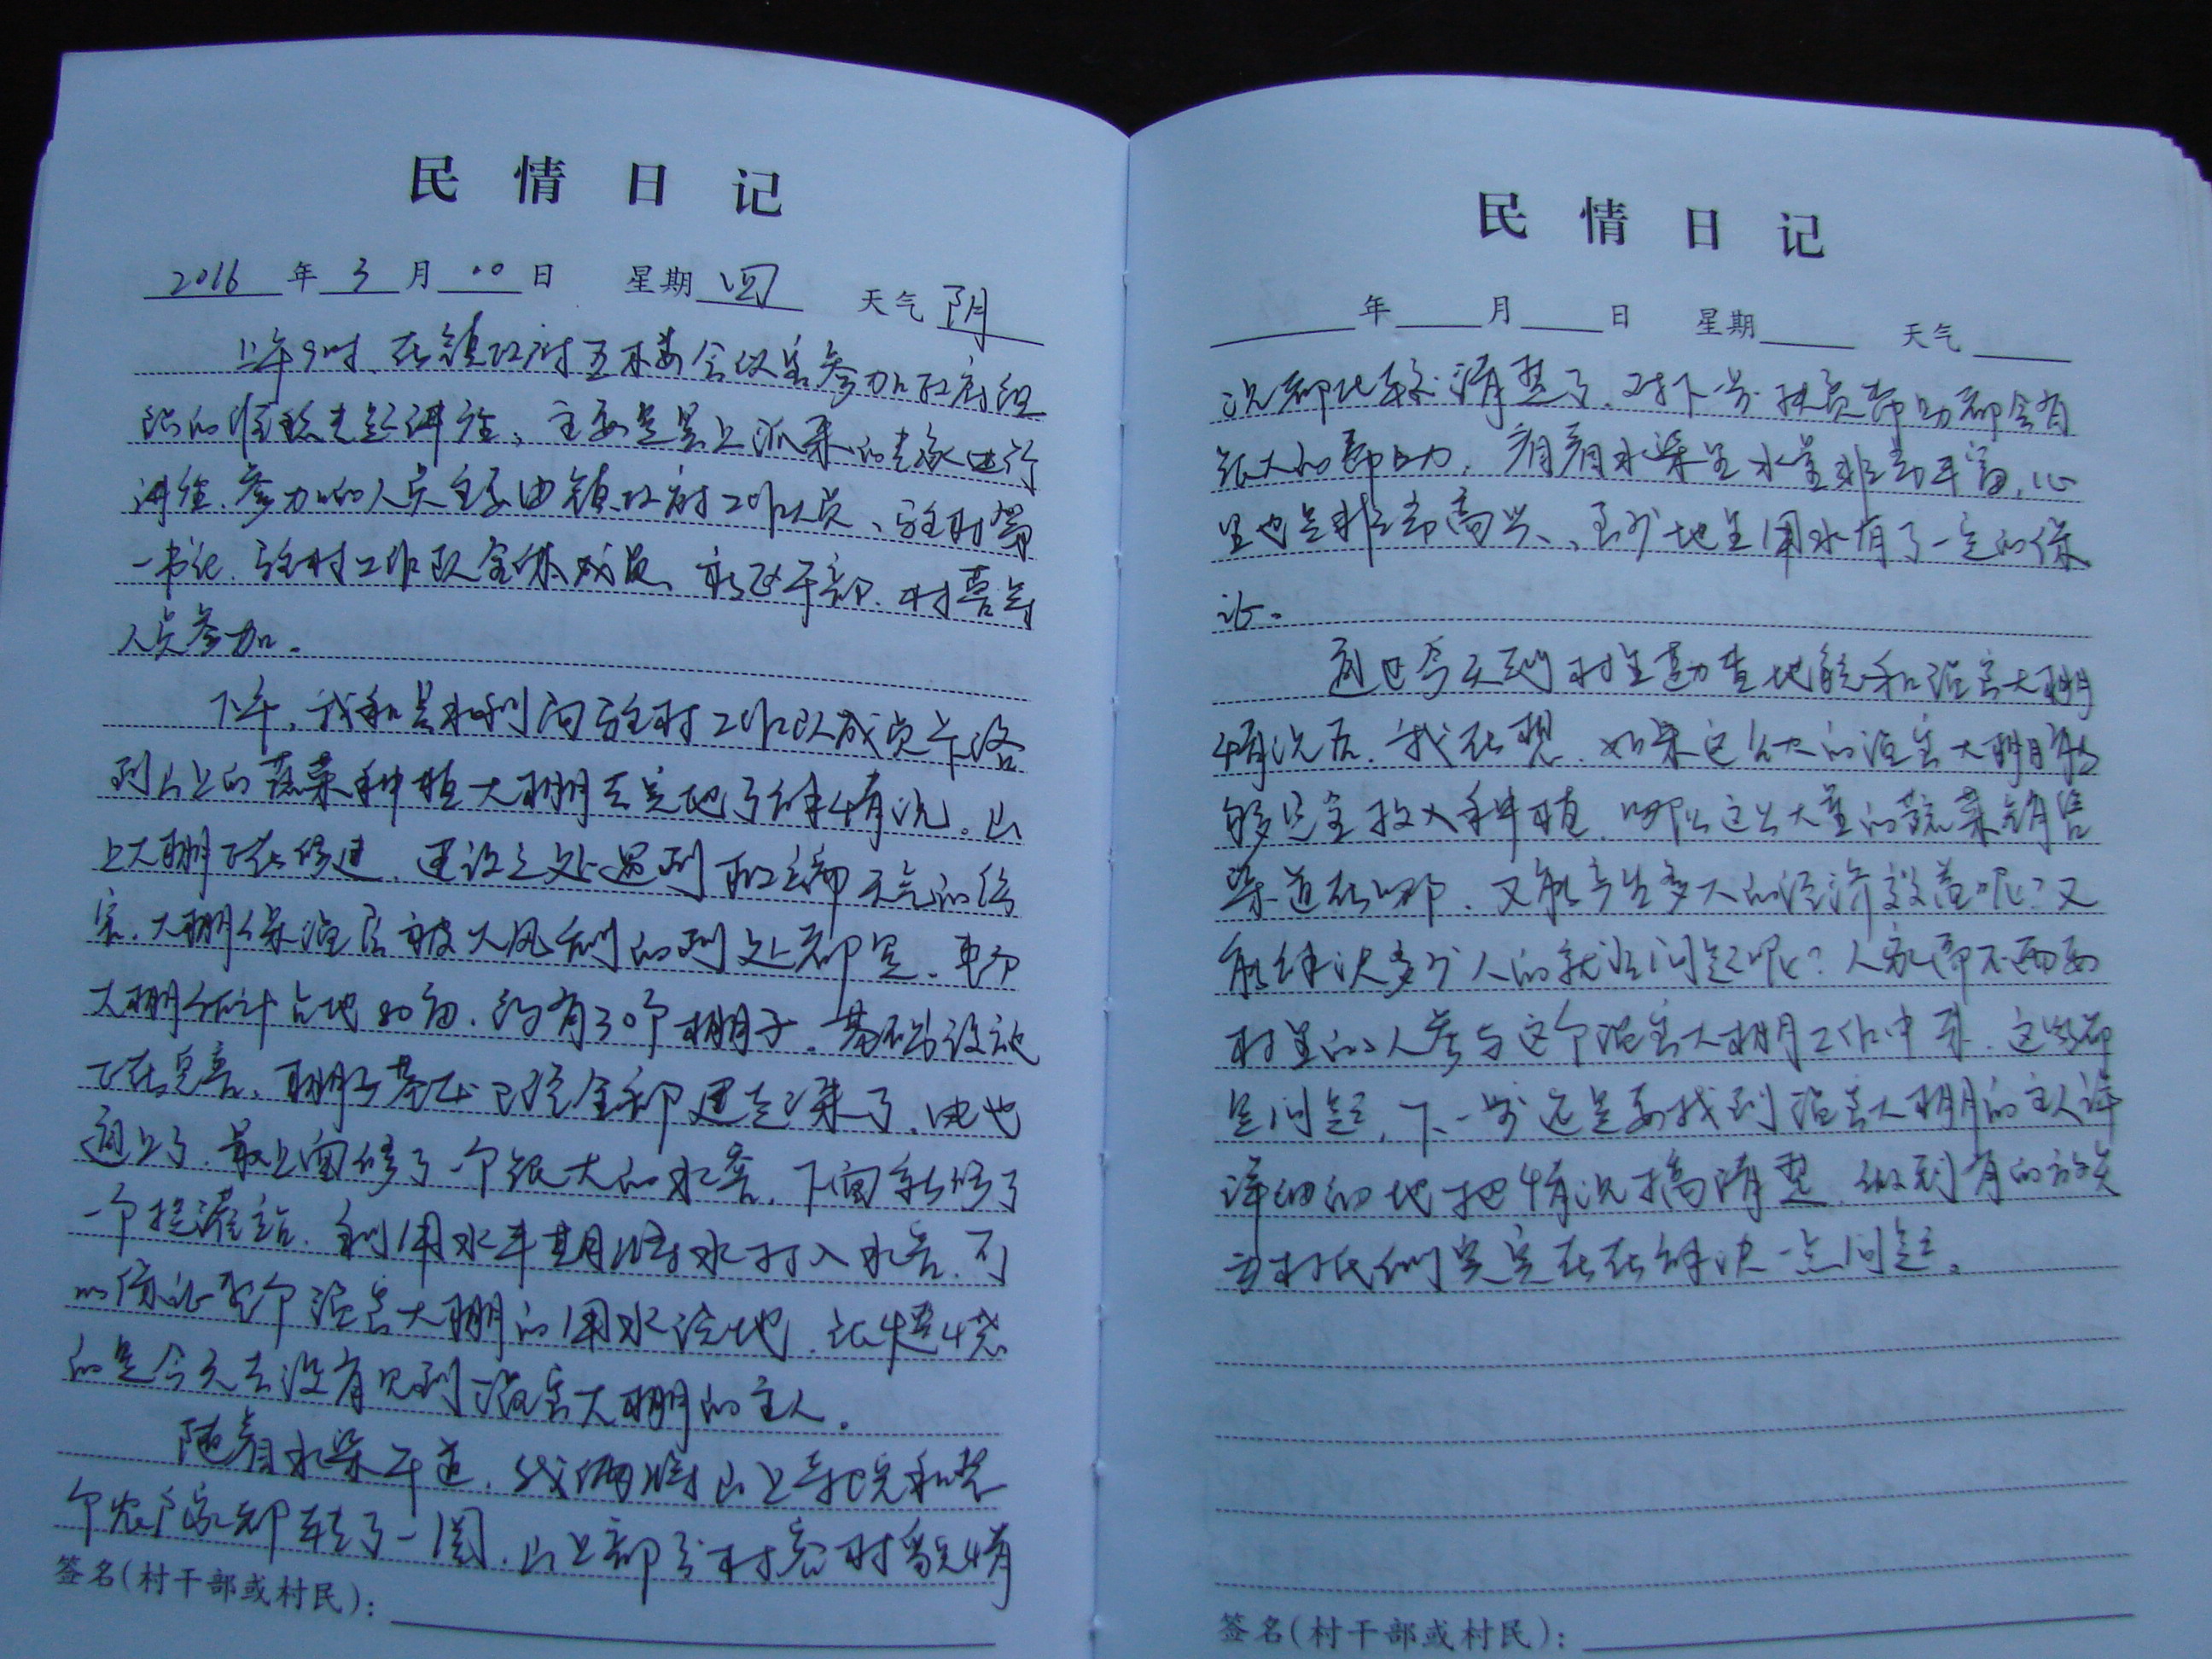 民情日记
2016年3月日 星期四 天气阴
上午9时、在镇政府五楼会议室参加政府组
织的专题讲座，主要是县上派来的专家进行
讲座、参加的人员主要由镇政府工作人员、驻村第
一书记、驻村工作队全体成员、干部、村等
人员参加。
下午，我和县水利局驻村工作队成员
到山上的蔬菜种植大棚去实地了解情况。山
上大棚正在修建，建设之处遇到极端天气的伤
害、大棚保温层被大风刮的到处都是。整个
大棚估计占地80亩，约有30个棚子，基础设施
正在完善，棚子基本已经全部建起来了，电也
通上了，最上面修了一个很大的水窖，下面新修了
一个提灌站，利用水丰期将水打入水窖，可
以保证整个温室大棚的用水浇地，比较遗憾
的是今天去没有见到温室大棚的主人。
随着水渠平道，我俩将山上和整
个农户家都转了一圈，山上部分村容村貌情
签名(村干部或村民)：
民情日记
年 月 日 星期 天气
况都比较清楚了，对下步扶贫帮助都会有
很大的帮助，看着水渠里水量非常丰富，心
里也是非常高兴、至少地里用水有了一定的保
证。
通过今天到村里勘查地貌和温室大棚
情况后，我在想，如果这么大的温室大棚能
够完全投入种植，那么这么大量的蔬菜销售
渠道在哪，又能产生多大的经济效益呢？又
能解决多少人的就业问题呢？人家需不需要
村里的人参与这个温室大棚工作中来，这些都
是问题，下一步还是要找到温室大棚的主人详
详细细地把情况搞清楚，做到有的放矢
为村民们实实在在解决一点问题。
签名(村干部或村民)：